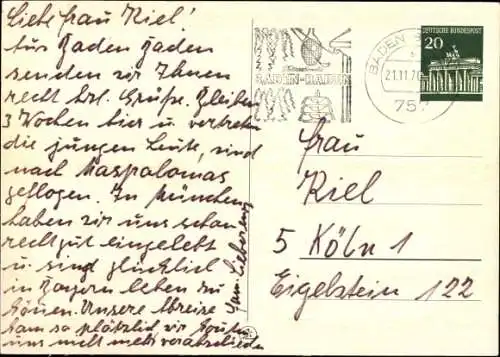 Liebe Frau Kiel!
Aus Baden Baden
senden wir Ihnen
recht hrl. Grüße. Bleiben
3 Wochen hier u. vertreten
die jungen Leute, sind
nach Maspalomas
geflogen. In München
haben wir uns schon
recht gut eingelebt
u. sind glücklich
in Bayern leben zu
können. Unsere Abreise
kam so plötzlich, wir konnten
uns nicht mehr verabschieden
BADEN-BADEN
BADEN
21.11.70
757
DEUTSCHE BUNDESPOST
20
Frau
Kiel
5 Köln 1
Eigelstein 122